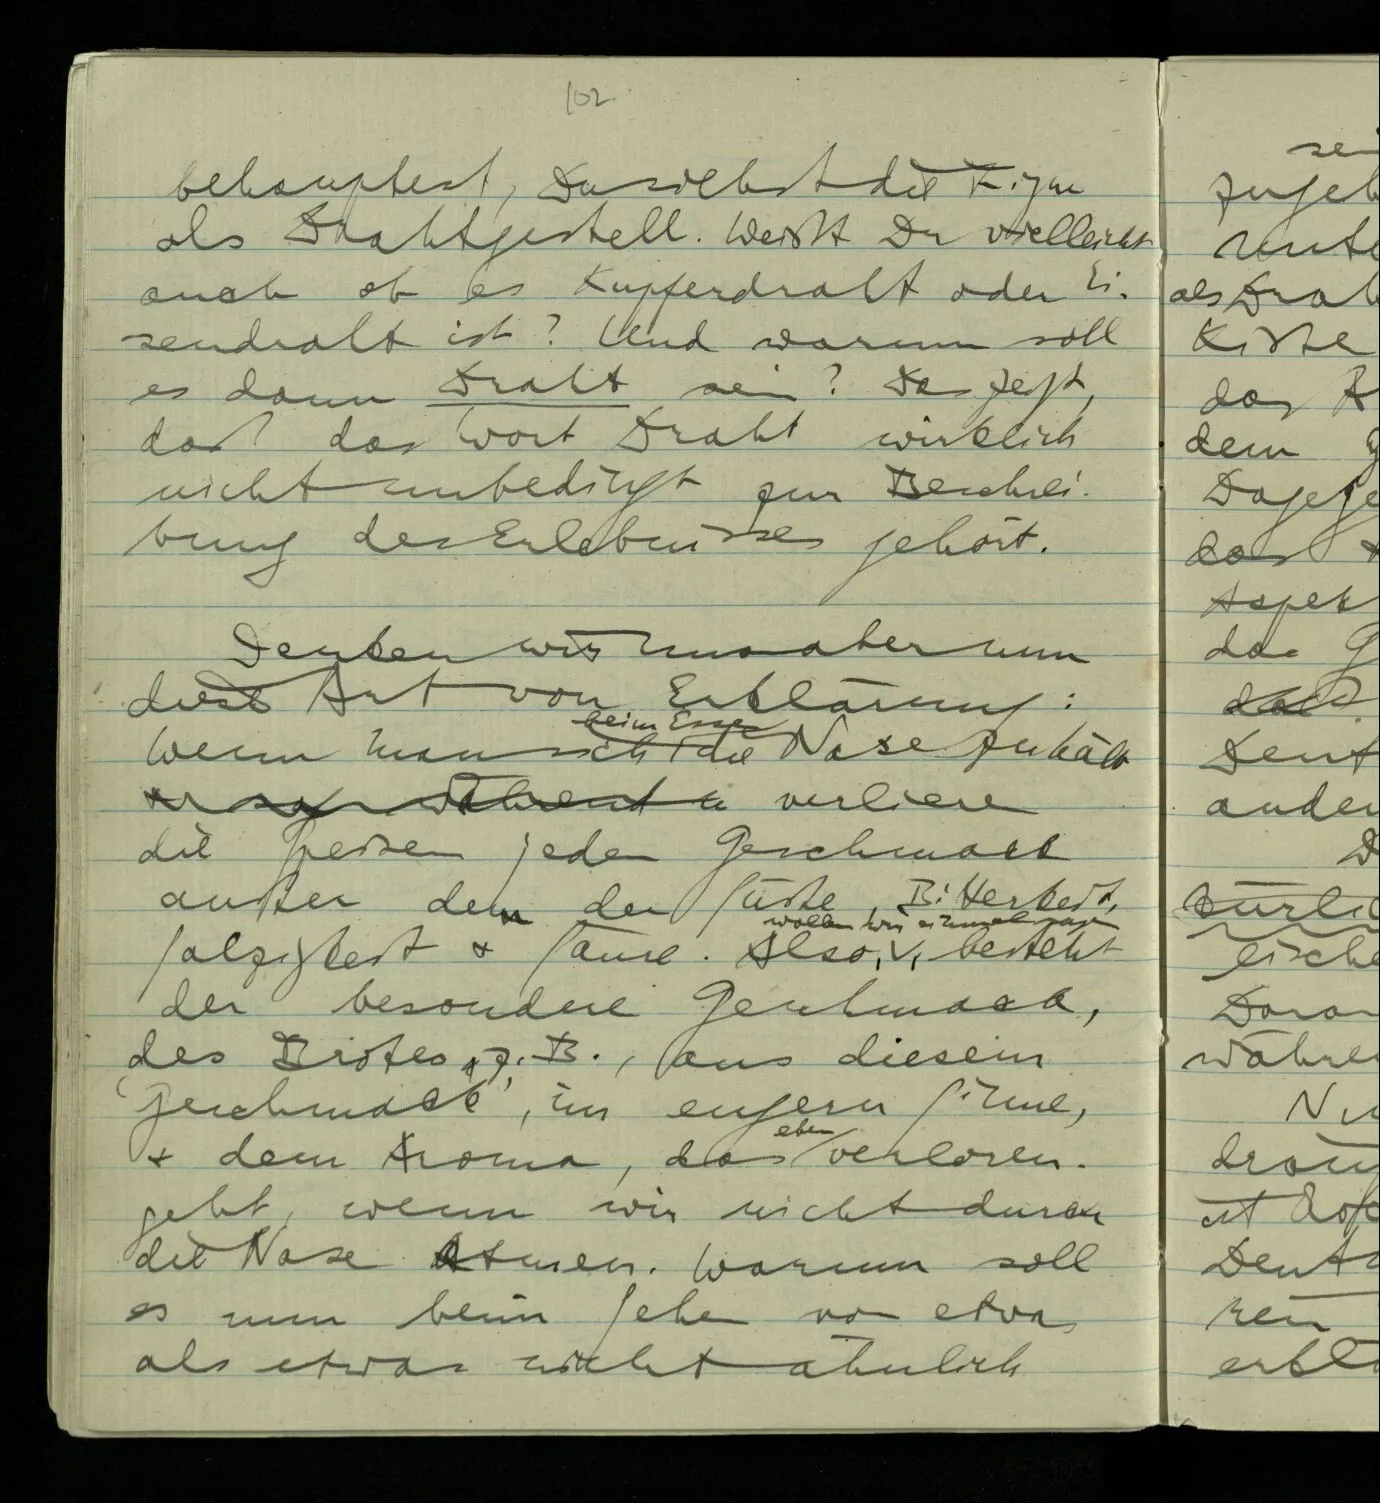 102
behauptest, Du siehst die Figur
als Drahtgestell. Weißt Du vielleicht
auch ob es Kupferdraht oder Ei-
sendraht ist? Und warum soll
es dann Draht sein? Das zeigt,
daß das Wort Draht wirklich
nicht unbedingt zur Beschrei-
bung des Erlebnisses gehört.
Denken wir uns aber nun
diese Art von Erklärung:
beim Essen
Wenn man sich die Nase zuhält
verliere
die Speisen jeden Geschmack
außer dem der Süße, Bitterkeit,
wollen wir einmal sagen
Salzigkeit & Säure. Also, besteht
der besondere Geschmack,
des Brotes, z.B., aus diesem
'Geschmack', im engern Sinne,
eben
& dem Aroma, das verloren-
geht, wenn wir nicht durch
die Nase Atmen. Warum soll
es nun beim Sehen von etwas
als etwas nicht ähnlich
sei
zugeh
als Drah
Kiste
das
dem
Dagege
das
Aspek
das G
daß
Denk
ander
D
Daran
währe
erklä